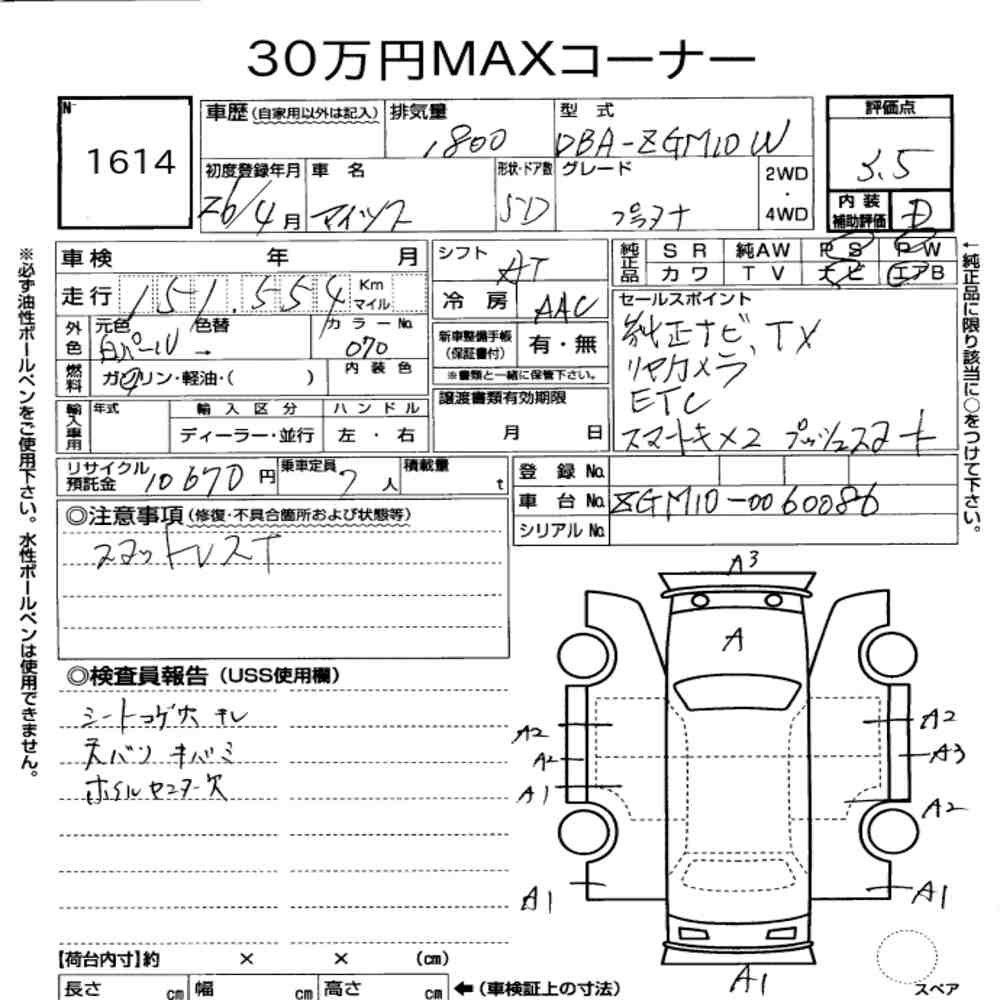 30万円MAXコーナー
No.
1614
車歴(自家用以外は記入)
排気量
1800
型 式
DBA-ZGM10W
評価点
3.5
初度登録年月
26/4月
車 名
アイシス
形状・ドア数
5D
グレード
プラタナ
2WD
・
4WD
内装
補助評価
D
車検 年 月
走行 151,554 Km
マイル
シフト
AT
冷 房
AAC
純正品
S R 純AW P S P W
カ ワ T V ナビ エアB
外色
元色 色替 カラーNo.
白パール → 070
燃料
ガソリン・軽油・( )
内 装 色
新車整備手帳
(保証書付)
有・無
※書類と一緒に保管下さい。
セールスポイント
純正ナビ、TV
リヤカメラ
ETC
スマートキ×2 プッシュスタート
輸入車用
年式
輸 入 区 分
ハ ン ド ル
ディーラー・並行
左 ・ 右
譲渡書類有効期限
月 日
リサイクル
預託金
10670円
乗車定員
7人
積載量
t
登 録 No.
車 台 No.
ZGM10-0060086
シリアル No.
◎注意事項(修復・不具合箇所および状態等)
スマットレスT
◎検査員報告(USS使用欄)
シートコゲ穴 キレ
天バリ キバミ
ホイルセンター欠
A3
A
A2
A2
A1
A1
A2
A3
A2
A1
A1
スペア
【荷台内寸】約 × × (cm)
長さ cm
幅 cm
高さ cm
←(車検証上の寸法)
※必ず油性ボールペンをご使用下さい。水性ボールペンは使用できません。
←純正品に限り該当に○をつけて下さい。